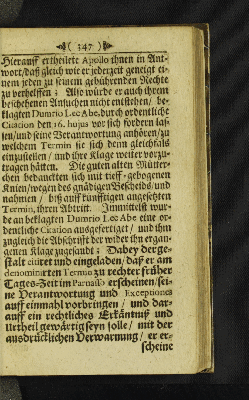 ( 347 )
Hierauff ertheilete Apollo ihnen in Ant-
wort/daß gleich wie er jederzeit geneigt ei-
nem jeden zu seinem gebührenden Rechte
zu verhelffen; Also würde er auch ihrem
beschehenen Ansuchen nicht entstehen/ be-
klagten Dumrio Lec Abe, durch ordentliche
Citation den 16. hujus vor sich fordern las-
sen/und seine Verantwortung anhören/zu
welchem Termin sie sich denn gleichfals
einzustellen/ und ihre Klage weiter vorzu-
tragen hätten. Die guten alten Mütter-
chen bedanckten sich mit tieff-gebogenen
Knien/wegen des gnädigen Bescheids/und
nahmen/ biß auff künfftigen angesetzten
Termin, ihren Abtritt. Immittelst wur-
de an beklagten Dumrio Lec Abe eine or-
dentliche Citation ausgefertiget/ und ihm
zugleich die Abschrifft der wider ihn ergan-
genen Klage zugesandt: Dabey derge-
stalt citiret und eingeladen/daß er am
denominirten Termin zu rechter früher
Tages-Zeit im Parnasso erscheinen/sei-
ne Verantwortung und Exceptiones
auff einmahl vorbringen/ und dar-
auff ein rechtliches Erkäntniß und
Urtheil gewärtig seyn solle/ mit der
ausdrücklichen Verwarnung/ er er-
scheine